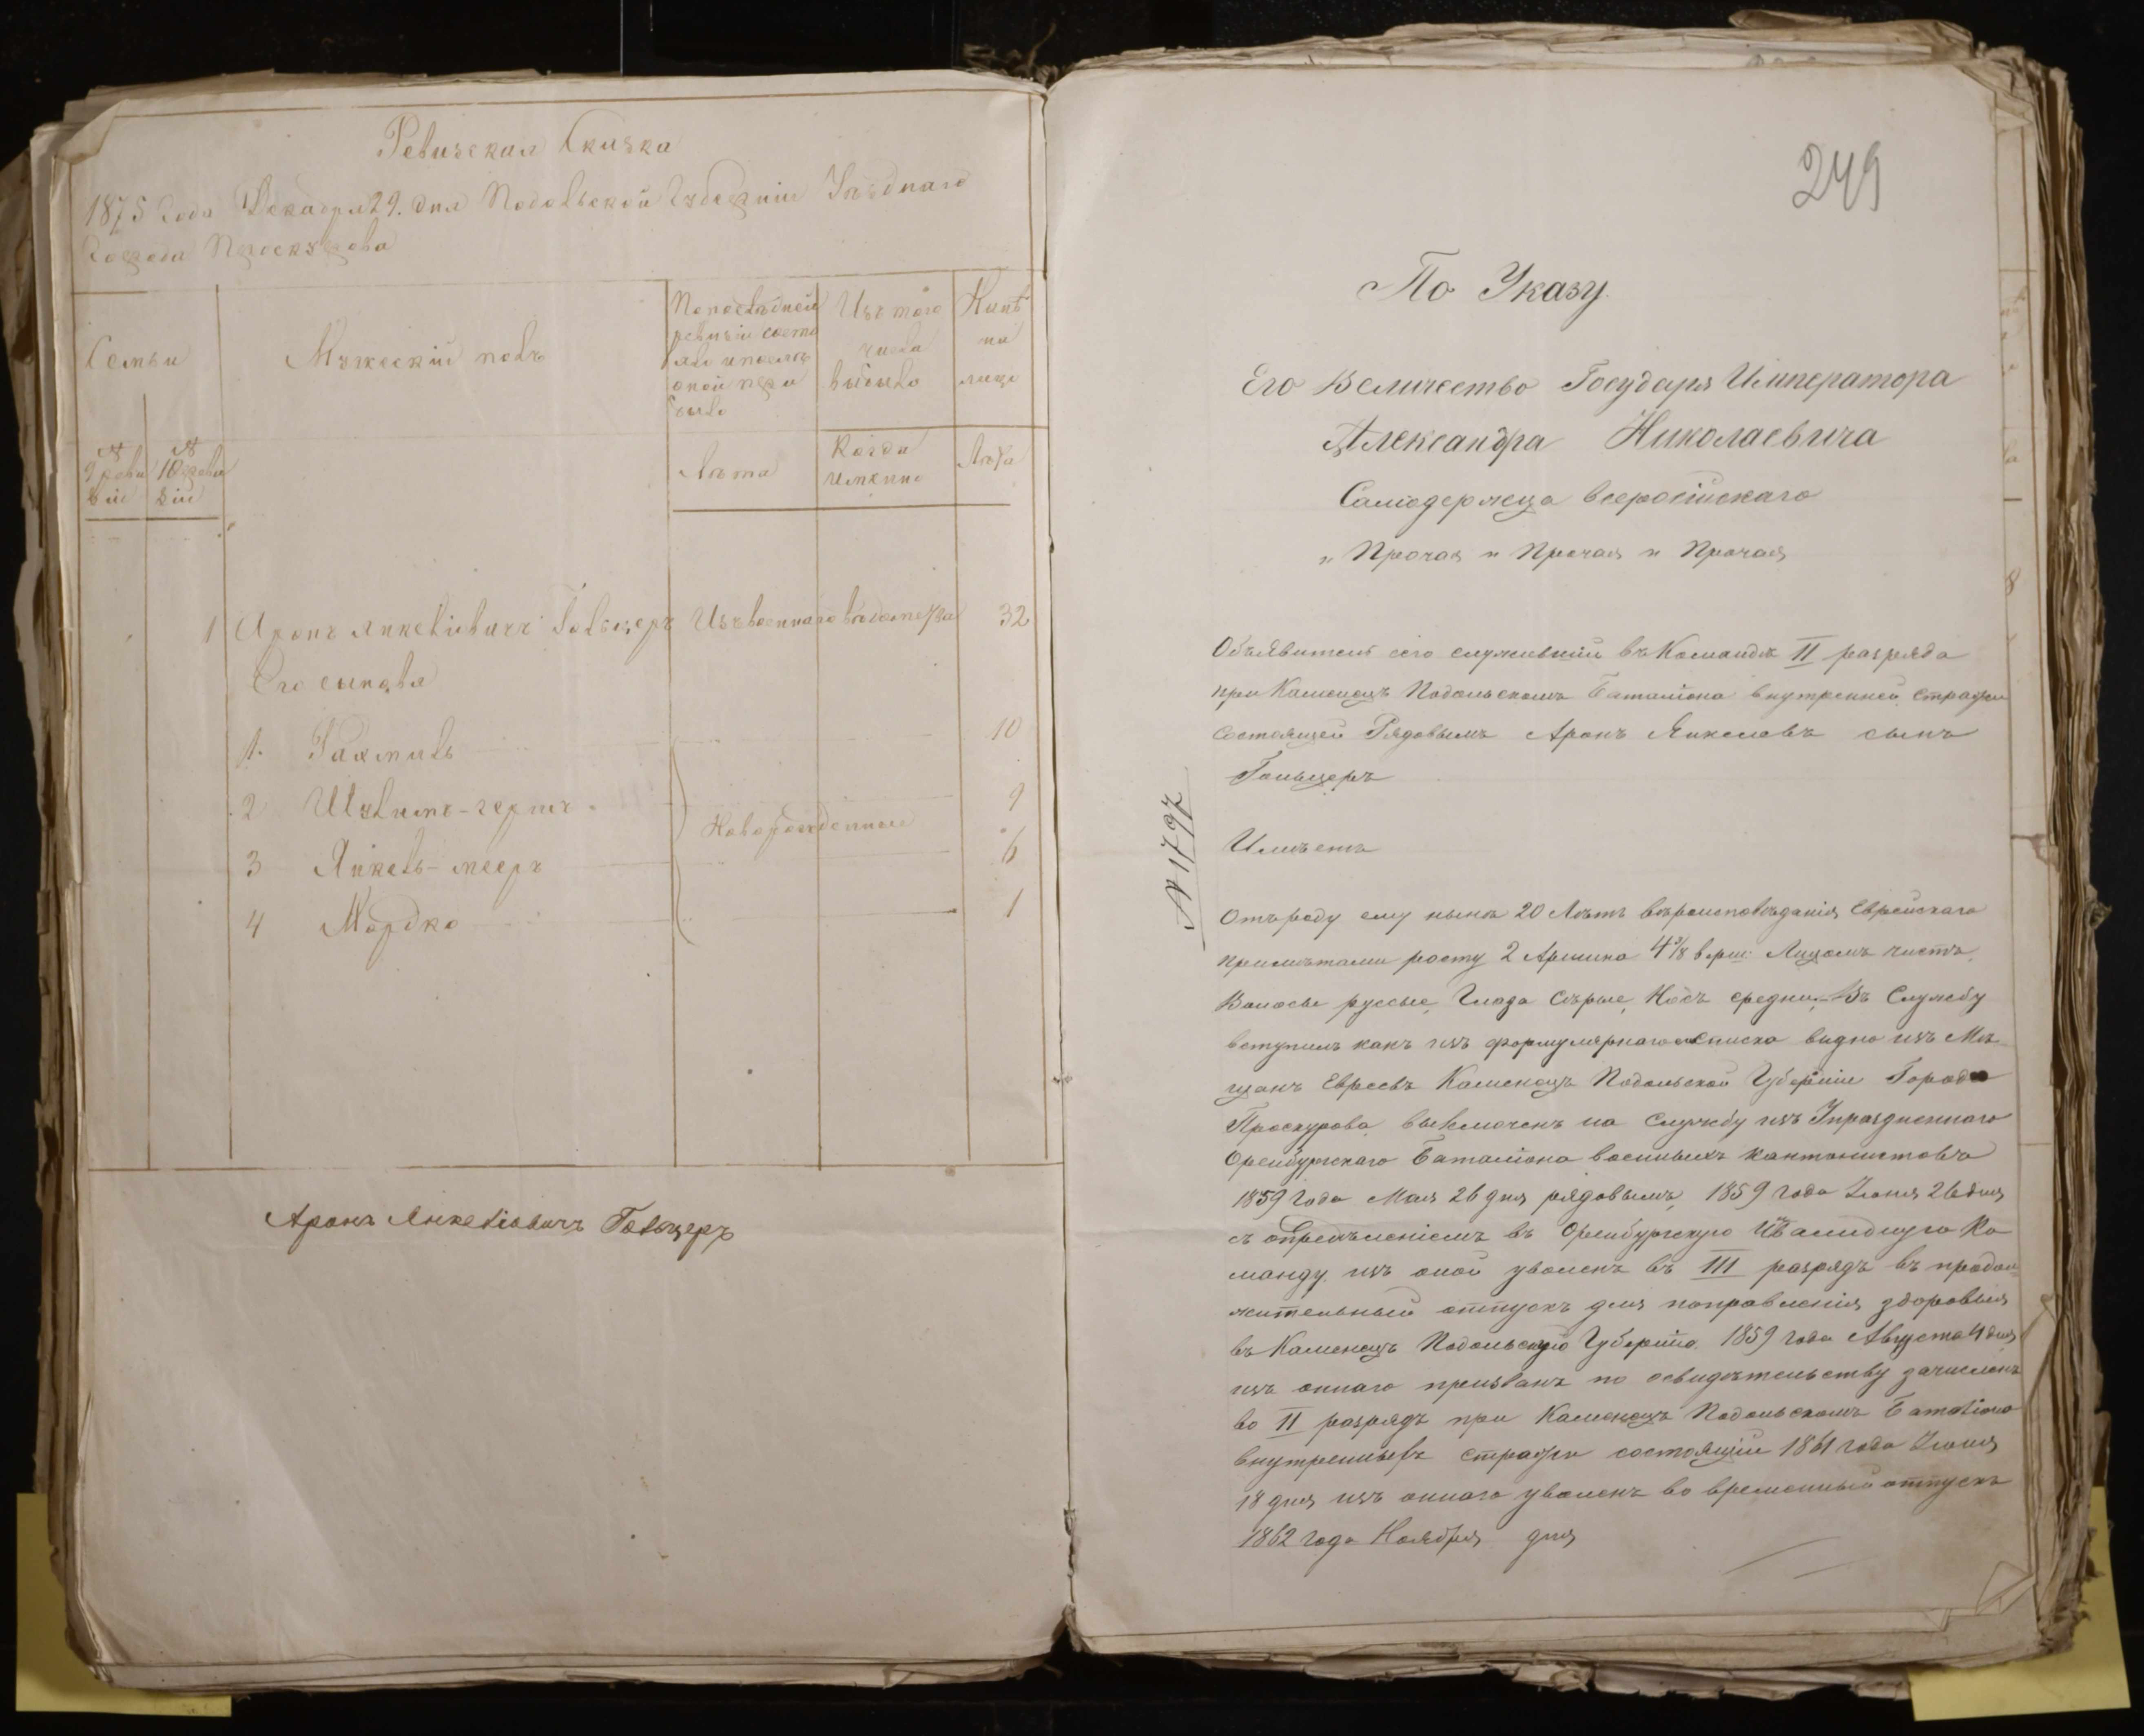 Ревизская Сказка
1875 года Декабря 29. дня Подольской Губерніи Уѣзднаго
Города Проскурова
Семьи
Мужескій полъ
По последней ревизіи состояло и после оной прибыло
Изъ того числа выбыло
Нынѣ на лицо
№ 9 ревизіи
№ 10 ревизіи
Лѣта
Когда именно
Лѣта
1 Аронъ Янкеліовичъ Гольцеръ Изъ военнаго ведомства 32
Его сыновя
1. Рахмиль 10
2 Шулимъ-гершъ 9
Новорожденные
3 Янкель-мееръ 6
4 Мордко 1
Аронъ Янкеліовичъ Гольцеръ
249
По Указу
Его Величество Государя Императора
Александра Николаевича
Самодержца всеросійскаго
и Прочая и Прочая и Прочая
Объявитель сего служивший въ Командѣ II разряда
при Каменецъ Подольскомъ Баталіона внутренней стражи
состоящей Рядовымъ Аронъ Янкелевъ сынъ
Гольцеръ
№ 1797
Имѣетъ
Отъ роду ему нынѣ 20 Лѣтъ вѣроисповѣданія Еврейскаго
примѣтами росту 2 Аршина 4 3/8 верш: Лицомъ чистъ,
Волосы руссые, Глаза Сѣрые, Носъ средни, Въ Службу
вступилъ какъ изъ формулярнаго списка видно изъ Мѣ-
щанъ Евреевъ Каменецъ Подольской Губерніи Города
Проскурова включенъ на Службу изъ Упраздненнаго
Оренбургскаго Баталіона военныхъ кантонистовъ
1859 Года Мая 26 дня рядовымъ, 1859 года Іюня 26 дня
съ опредѣленіемъ въ Оренбургскую Инвалидную Ко
манду изъ оной уволенъ въ III разрядъ въ продол-
жительный отпускъ для поправленія здоровья
въ Каменецъ Подольскую Губернію. 1859 года Августа 4 дня
изъ оннаго призванъ по освидѣтельству зачисленъ
во II разрядъ при Каменецъ Подольскомъ Баталіона
внутренныхъ стражи состоящіи 1861 года Іюня
18 дня изъ оннаго уволенъ во временный отпускъ
1862 года Ноября дня